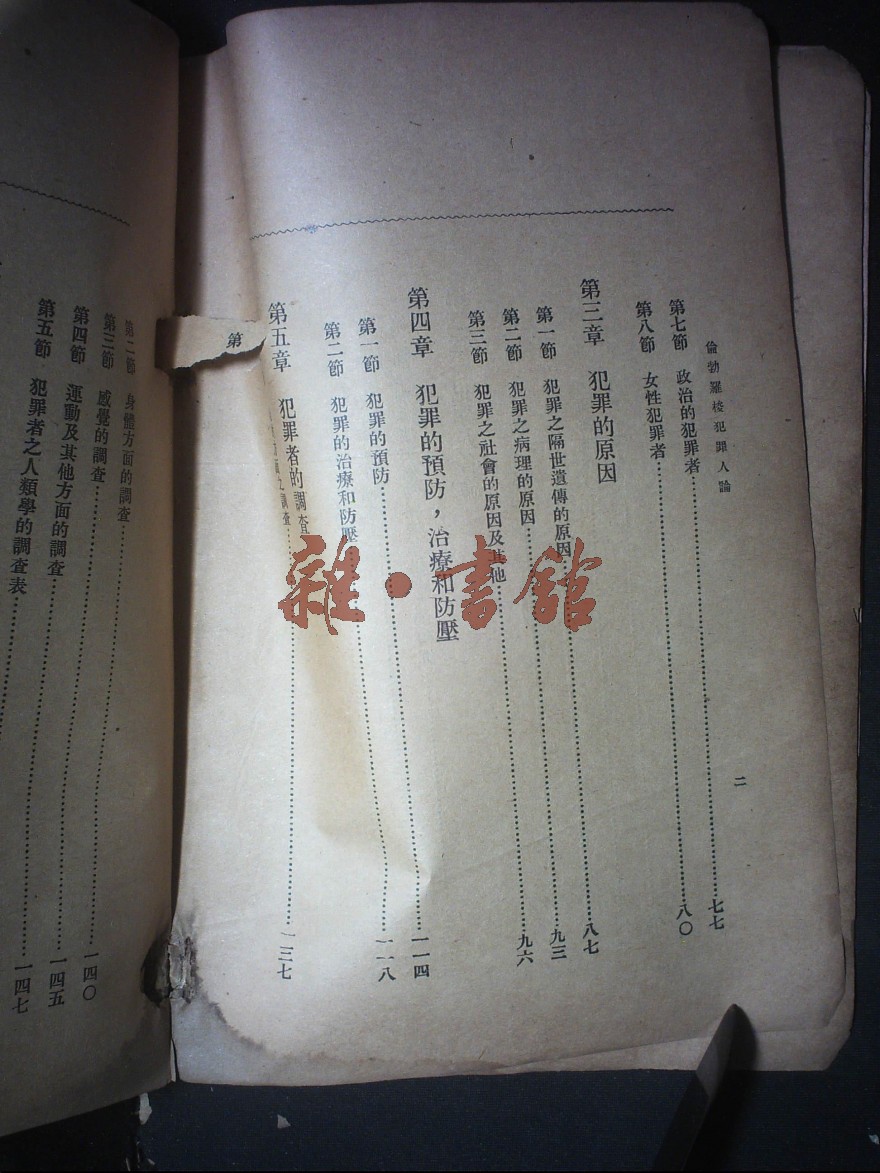 倫勃羅梭犯罪人論
二
第七節　政治的犯罪者……七七
第八節　女性犯罪者……八〇
第三章　犯罪的原因
第一節　犯罪之隔世遺傳的原因……八七
第二節　犯罪之病理的原因……九三
第三節　犯罪之社會的原因及其他……九六
第四章　犯罪的預防，治療和防壓
第一節　犯罪的預防……一一四
第二節　犯罪的治療和防壓……一一八
第五章　犯罪者的調查
第　之調查……一三七
第二節　身體方面的調查……一四〇
第三節　感覺的調查……一四五
第四節　運動及其他方面的調查……一四七
第五節　犯罪者之人類學的調查表……
雜·書館